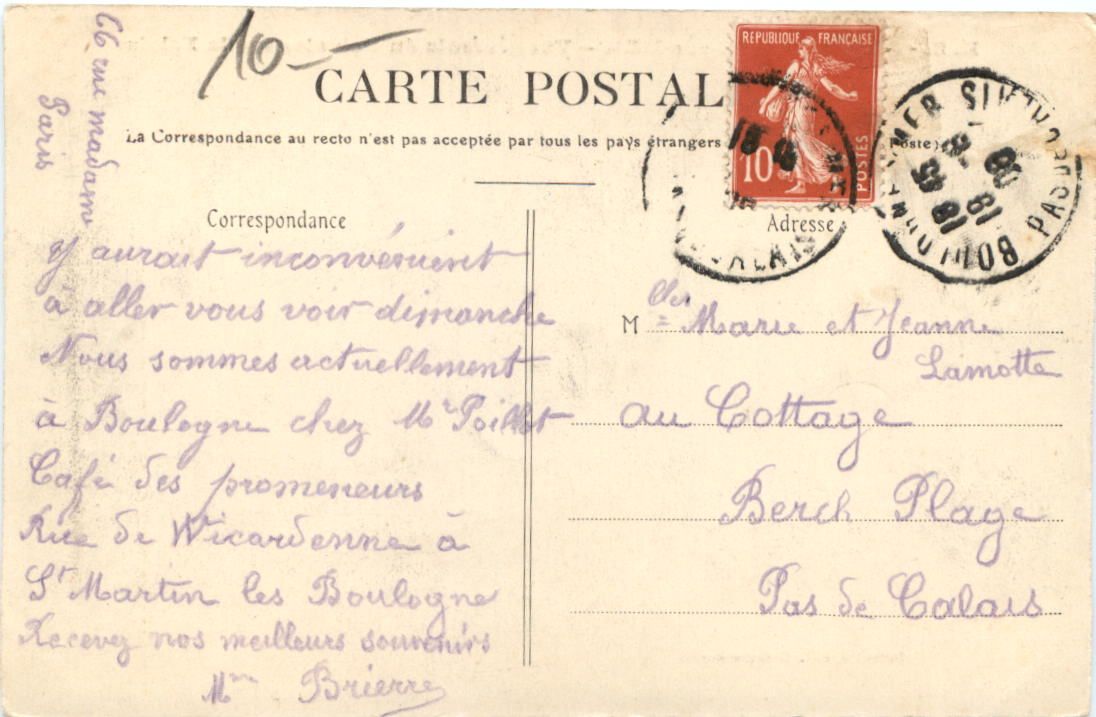 10—
CARTE POSTALE
La Correspondance au recto n'est pas acceptée par tous les pays étrangers Poste)
RÉPUBLIQUE FRANÇAISE
10
POSTES
PAS DE CALAIS
BOULOGNE S MER
18 45
18
08
66 rue madame
Paris
Correspondance
Y aurait inconvénient
à aller vous voir dimanche
Nous sommes actuellement
à Boulogne chez Mr Poillet
Café des promeneurs
Rue de Wicardenne à
St Martin les Boulogne
Recevez nos meilleurs souvenirs
Mme Brierre
Adresse
Melles Marie et Jeanne
Lamotte
au Cottage
Berck Plage
Pas de Calais